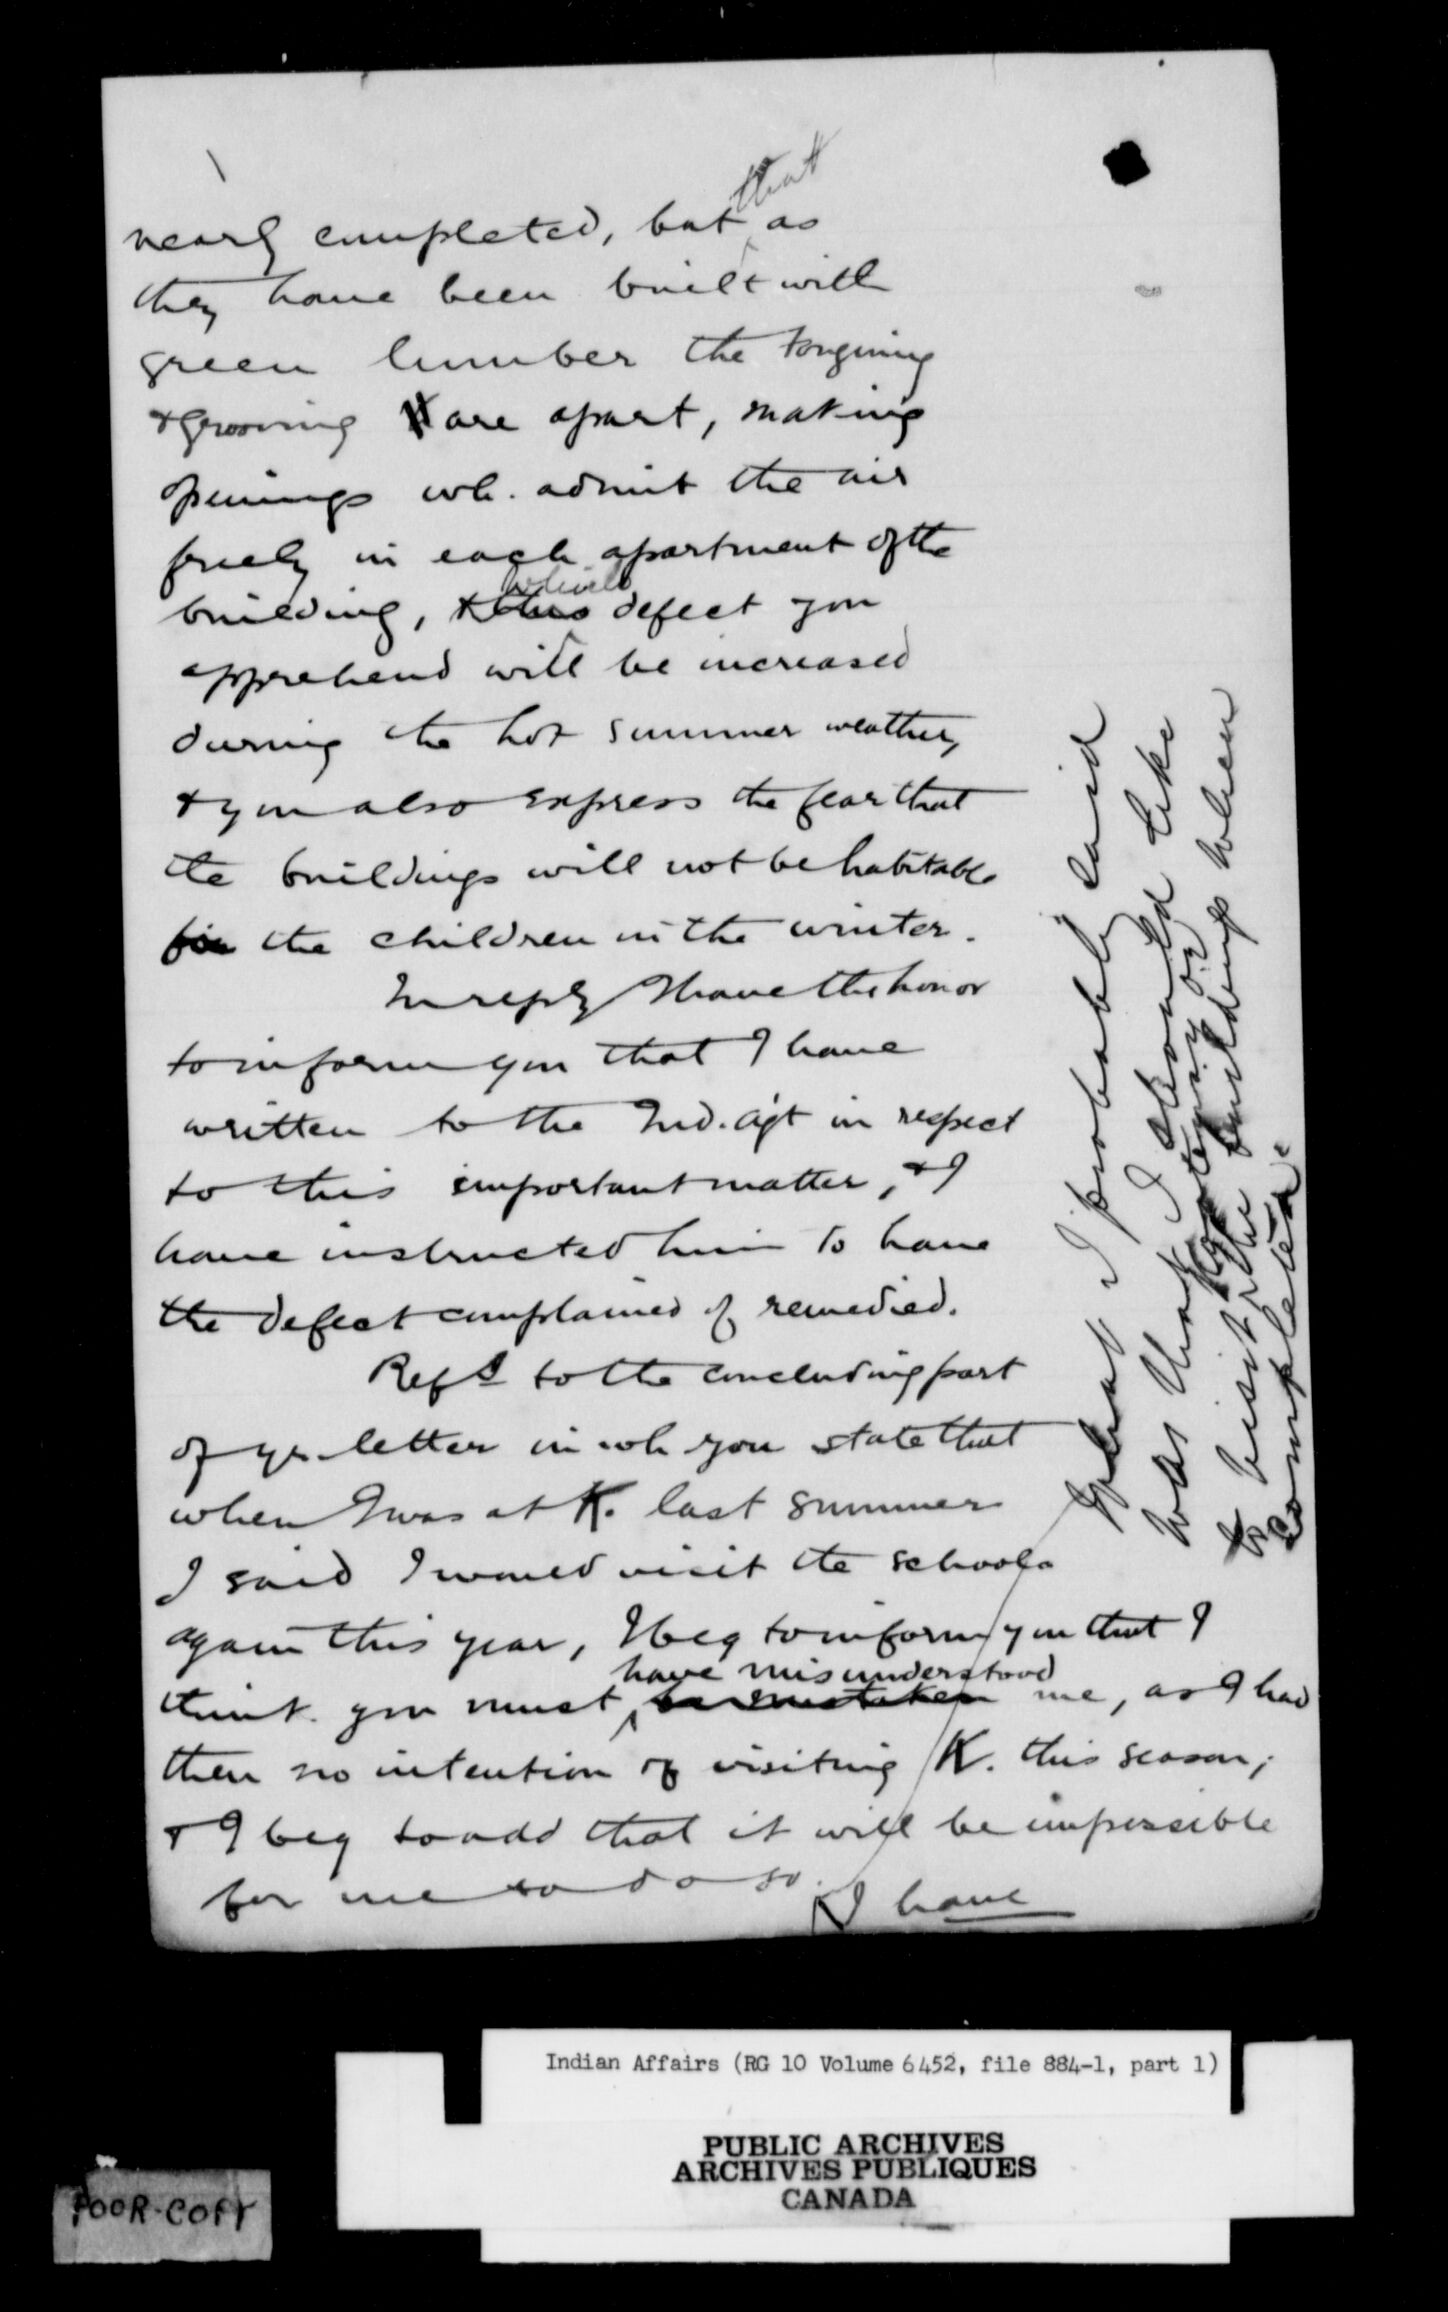 nearly completed, but that as
they have been built with
green lumber the tonguing
& grooving are apart, making
openings wh. admit the air
freely in each apartment of the
building, & this which defect you
apprehend will be increased
during the hot summer weather,
& you also express the fear that
the buildings will not be habitable
for the children in the winter.
In reply I have the honor
to inform you that I have
written to the Ind. agt in respect
to this important matter, & I
have instructed him to have
the defect complained of remedied.
Refg to the concluding part
of yr letter in wh you state that
when I was at K. last summer
I said I would visit the schools
again this year, I beg to inform you that I
have misunderstood
think you must be mistaken me, as I had
then no intention of visiting K. this season;
& I beg to add that it will be impossible
for me to do so.
I have
What I probably said
was that I should like
to visit the buildings when
completed.
Indian Affairs (RG 10 Volume 6452, file 884-1, part 1)
PUBLIC ARCHIVES
ARCHIVES PUBLIQUES
CANADA
POOR-COPY